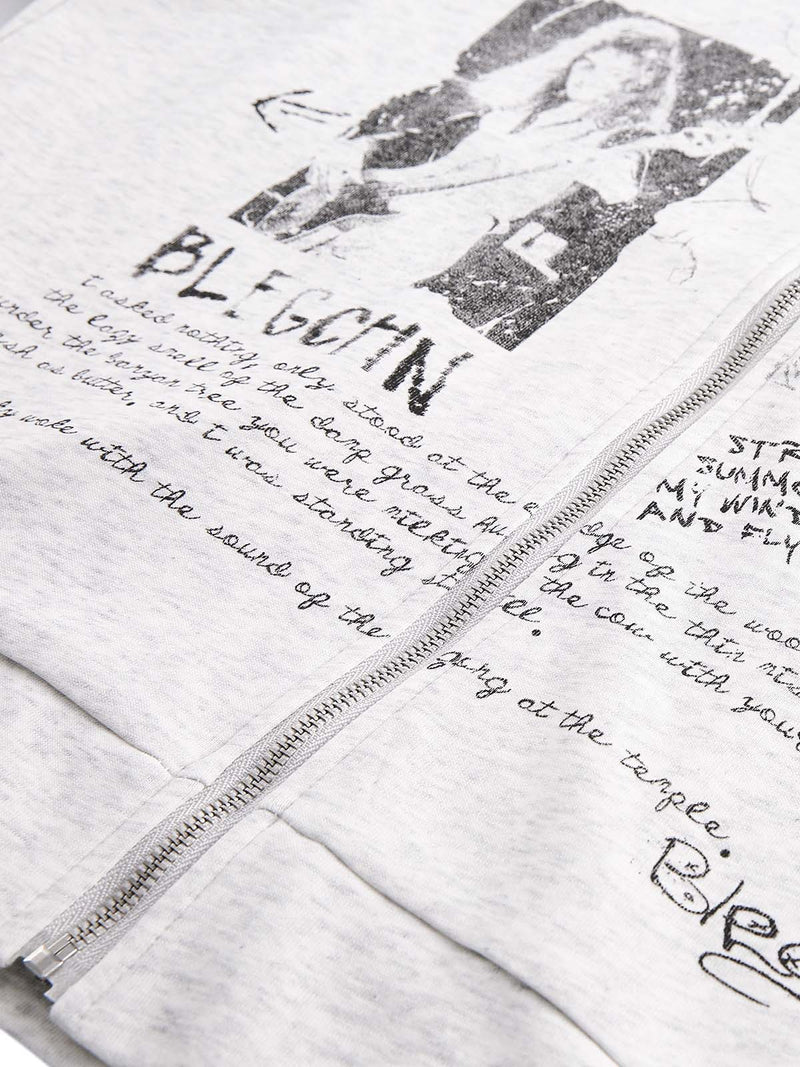 BLEGCHN
I asked nothing, only stood at the edge of the woo
the lazy smell of the damp grass
under the banyan tree you were milking the cow with your
as butter, and I was standing still.
woke with the sound of the gong at the templa.
STR
SUMM
MY WIN
AND FLY
Ble